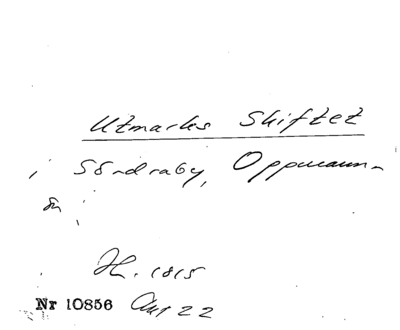 Utmarks Skiftet
i Söndraby, Oppmann-
ö
H. 1815
Nr 10856 Aug 22